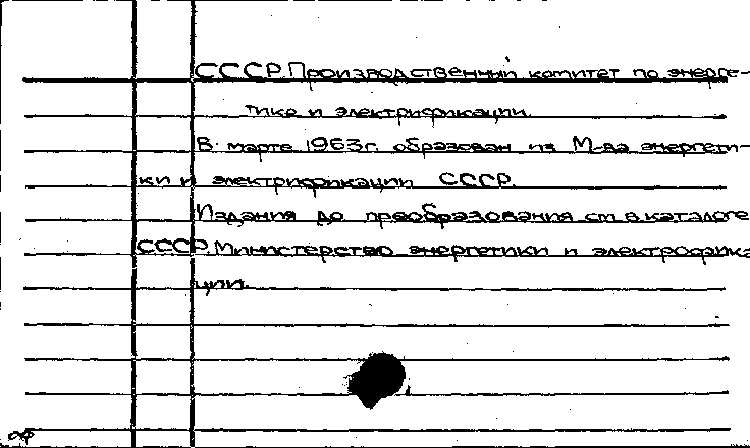 СССР. Производственный комитет по энерге-
тике и электрификации.
В марте 1963г. образован из М-ва энергети-
ки и электрификации СССР.
Издания до преобразования см. в каталоге
СССР. Министерство энергетики и электрофика-
ции.